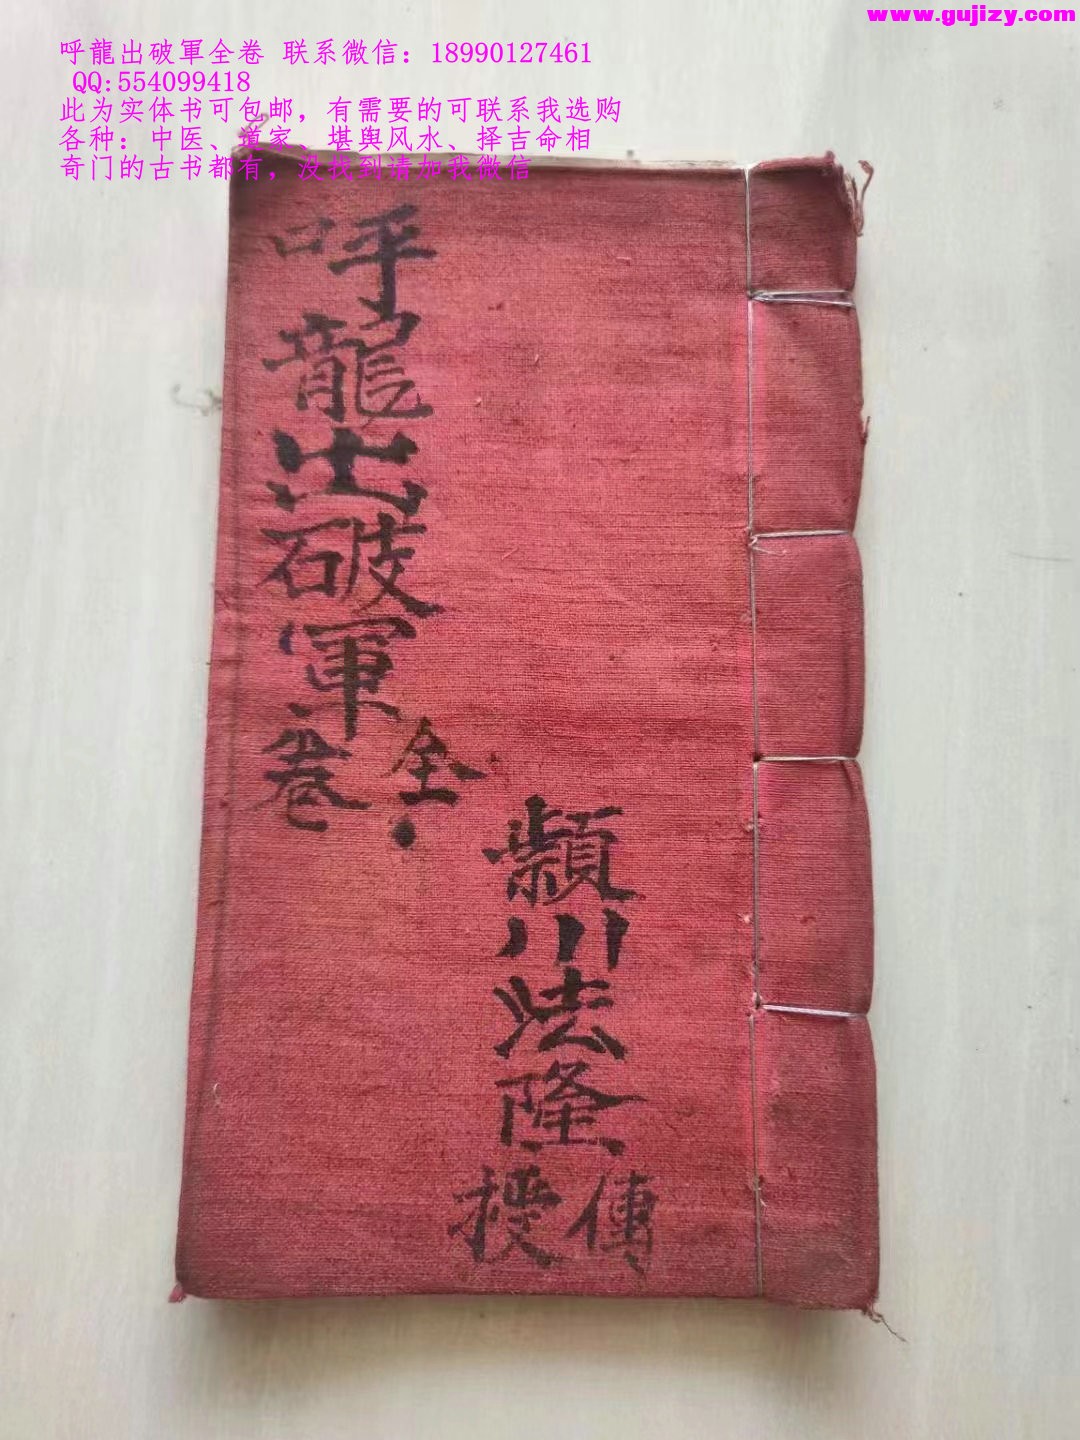 www.gujizy.com
呼龍出破軍全卷 联系微信：18990127461
QQ:554099418
此为实体书可包邮，有需要的可联系我选购
各种：中医、道家、堪舆风水、择吉命相
奇门的古书都有，没找到请加我微信
呼龍出破軍卷全
潁川法隆
傳授